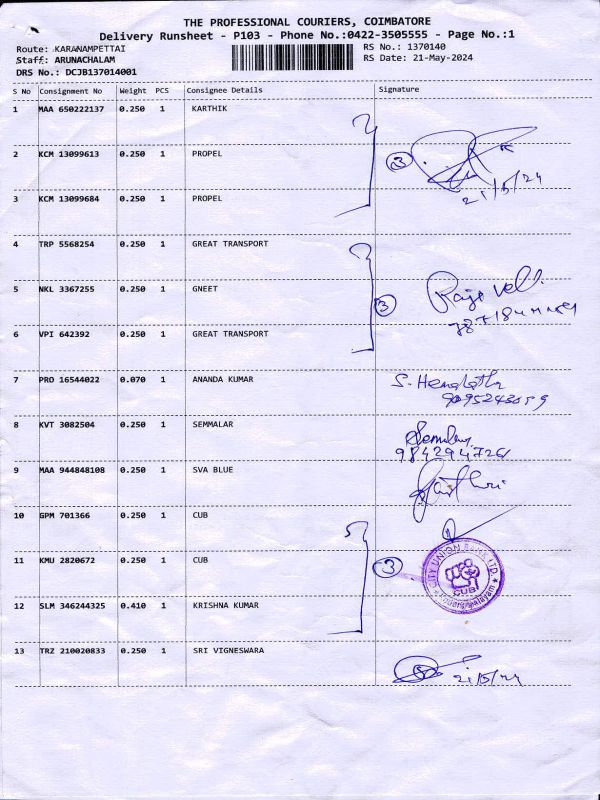 THE PROFESSIONAL COURIERS, COIMBATORE
Delivery Runsheet - P103 - Phone No.:0422-3505555 - Page No.:1
Route: KARANAMPETTAI RS No.: 1370140
Staff: ARUNACHALAM RS Date: 21-May-2024
DRS No.: DCJB137014001
S No Consignment No Weight PCS Consignee Details Signature
1 MAA 650222137 0.250 1 KARTHIK
2 KCM 13099613 0.250 1 PROPEL 3
21/5/24
3 KCM 13099684 0.250 1 PROPEL
4 TRP 5568254 0.250 1 GREAT TRANSPORT
5 NKL 3367255 0.250 1 GNEET 3
6 VPI 642392 0.250 1 GREAT TRANSPORT
7 PRO 16544022 0.070 1 ANANDA KUMAR S. Hemalatha
8 KVT 3082504 0.250 1 SEMMALAR
9 MAA 944848108 0.250 1 SVA BLUE
10 GPM 701366 0.250 1 CUB
11 KMU 2820672 0.250 1 CUB 3 CITY UNION BANK LTD. CUB
12 SLM 346244325 0.410 1 KRISHNA KUMAR
13 TRZ 210020833 0.250 1 SRI VIGNESWARA 21/5/24